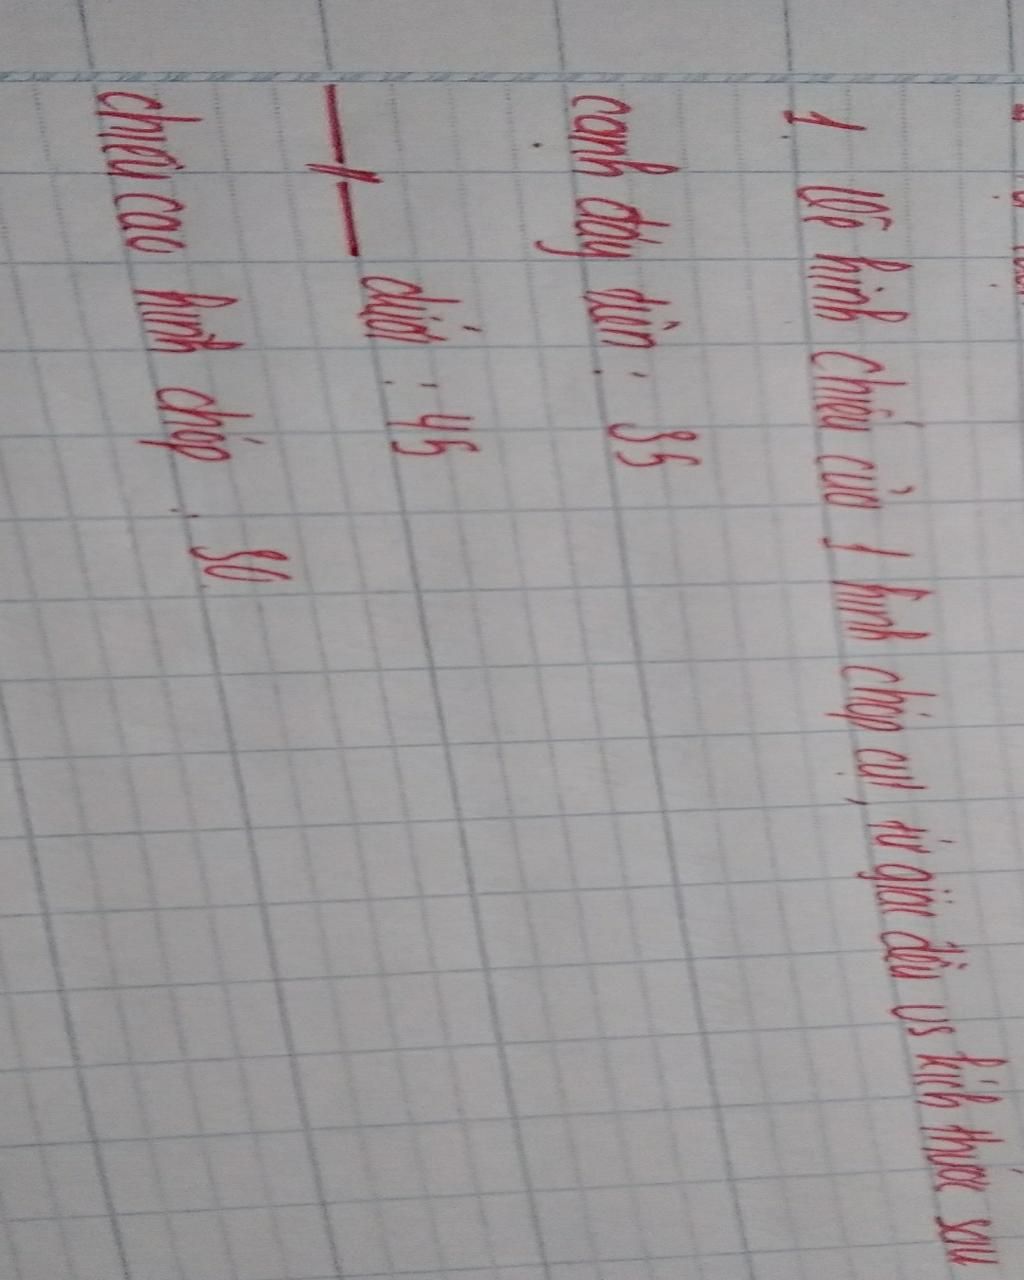 1. Vẽ hình chiếu của 1 hình chóp cụt, tứ giác đều vs kích thước sau
cạnh đáy trên: 35
—〃— dưới : 45
chiều cao hình chóp : 50